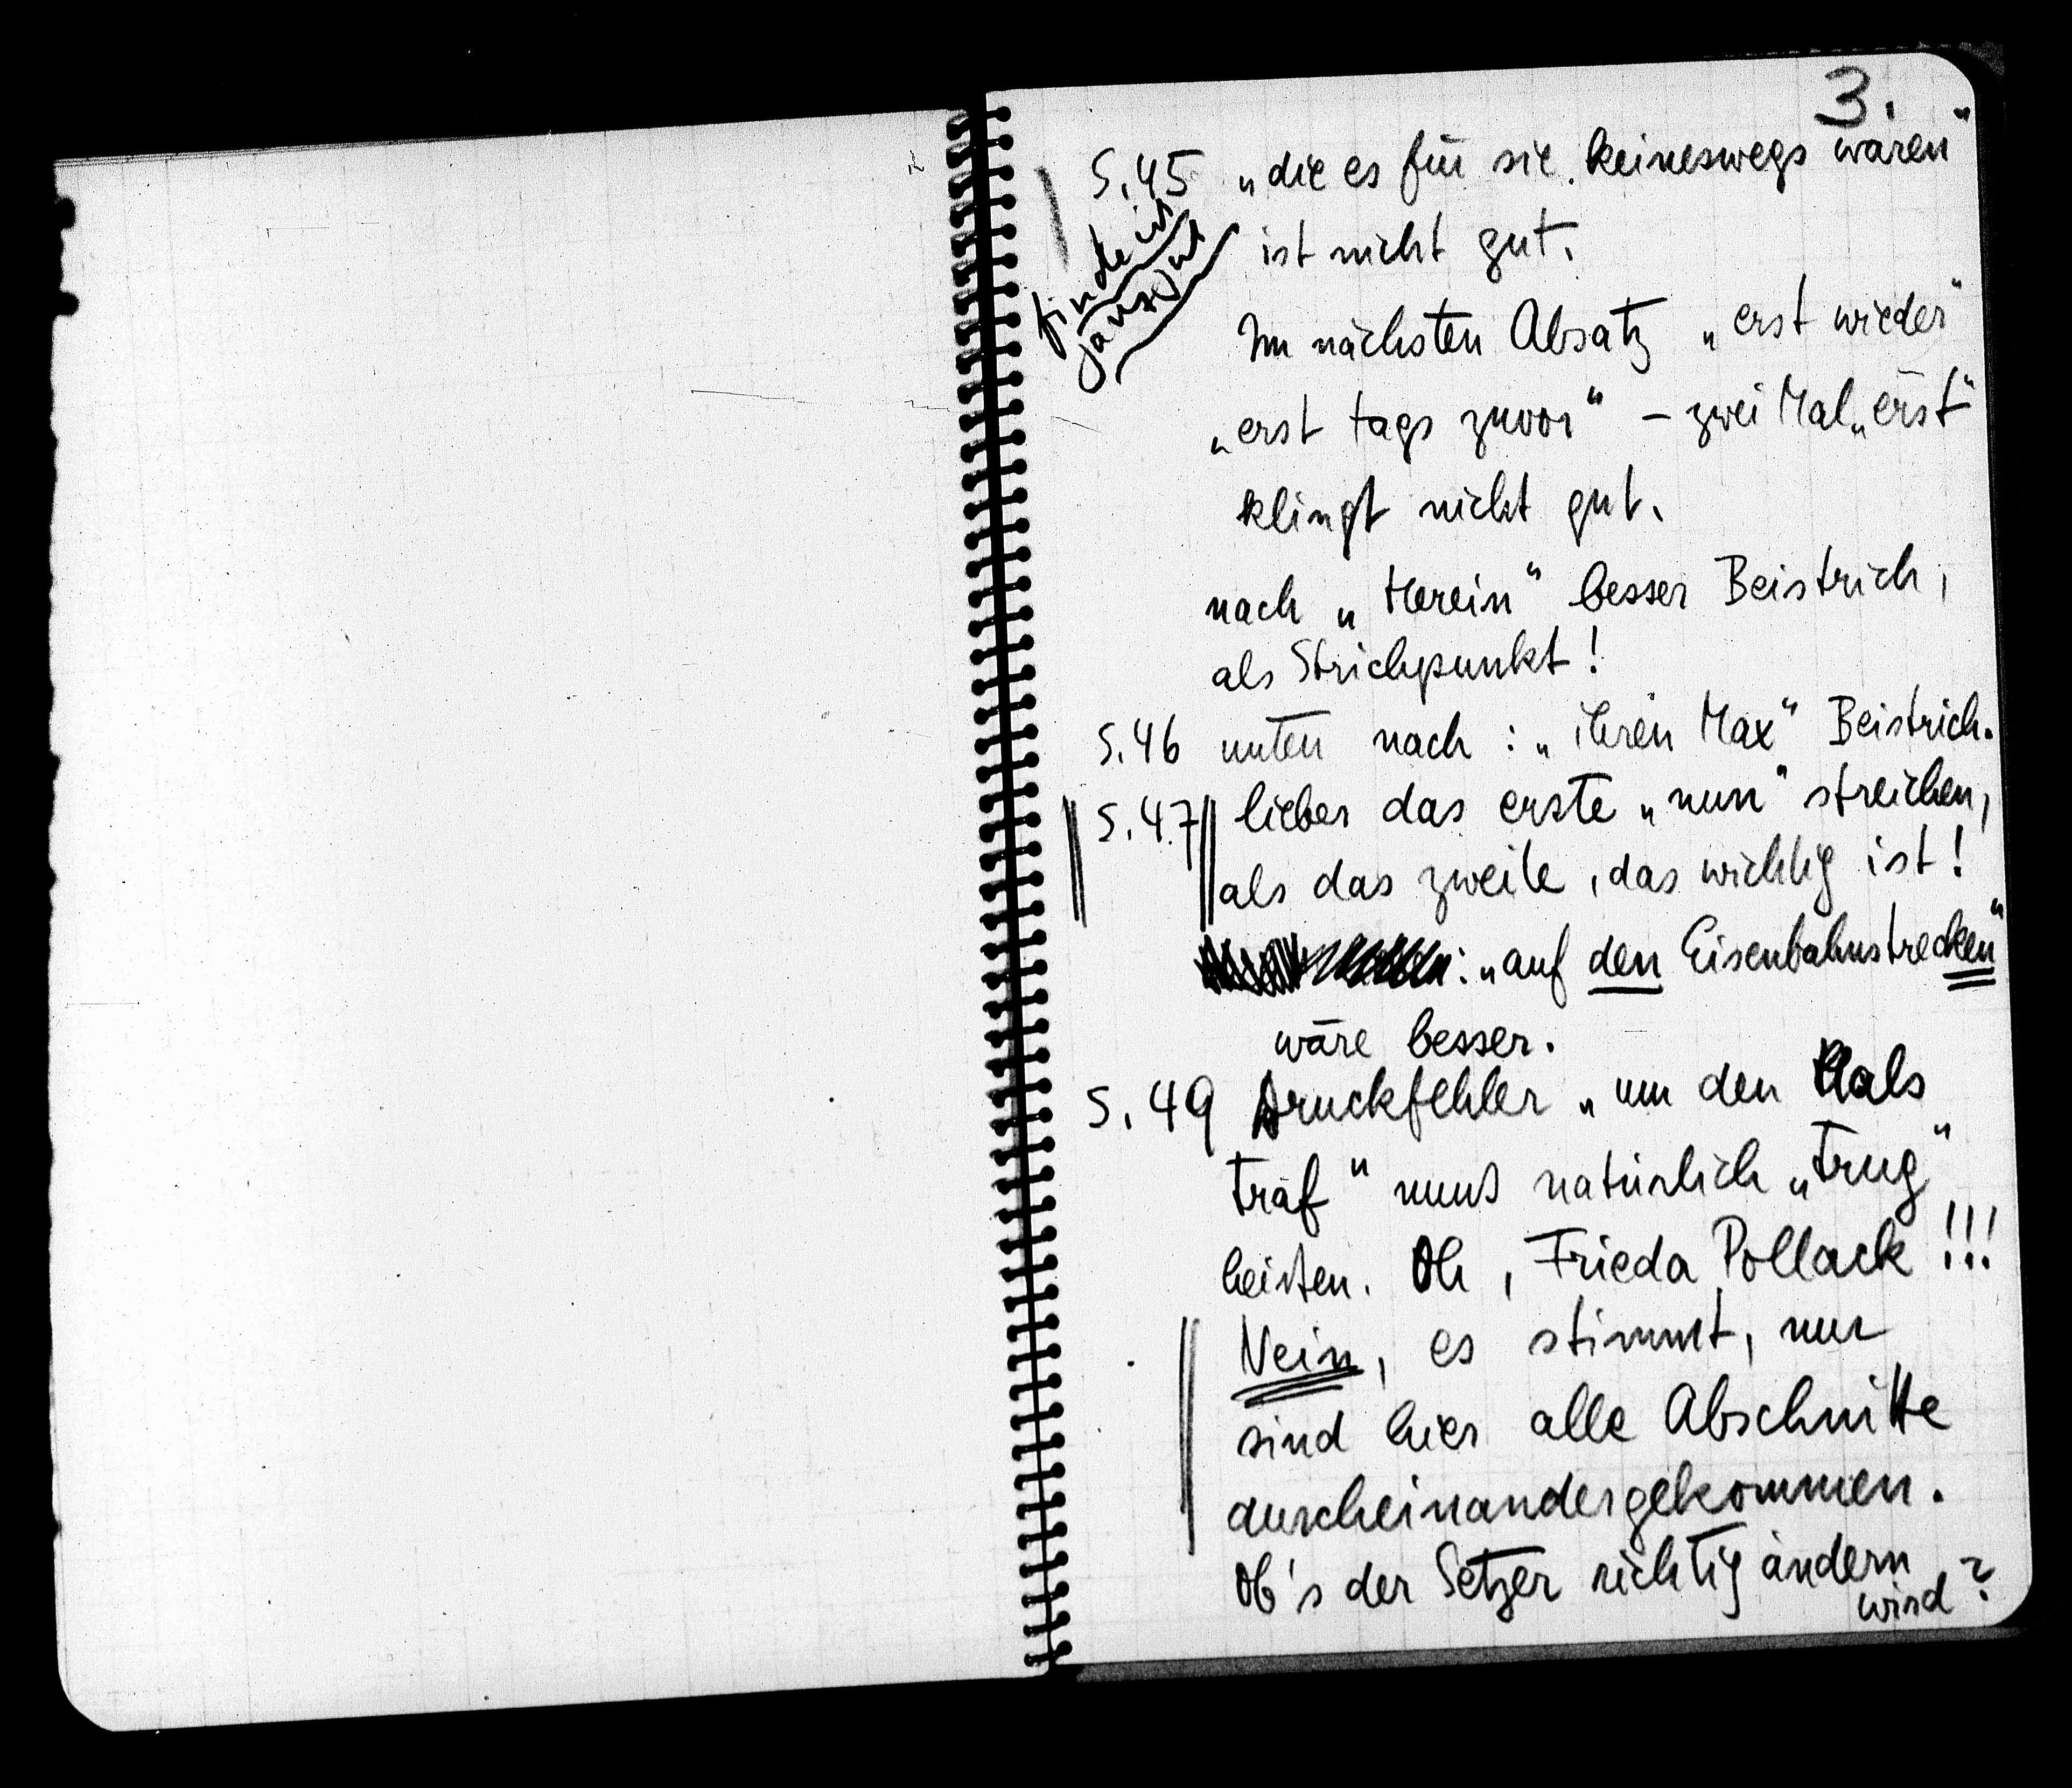 3.
S. 45 „die es für sie keineswegs waren"
finde ich
ganz gut
ist nicht gut.
Im nächsten Absatz „erst wieder"
„erst tags zuvor" – zwei Mal „erst"
klingt nicht gut.
nach „Herein" besser Beistrich,
als Strichpunkt!
S. 46 unten nach: „ihren Max" Beistrich.
S. 47 lieber das erste „nun" streichen,
als das zweite, das wichtig ist!
: „auf den Eisenbahnstrecken"
wäre besser.
S. 49 Druckfehler „um den Hals
traf" muß natürlich „trug"
heißen. Oh, Frieda Pollack!!!
Nein, es stimmt, nur
sind hier alle Abschnitte
durcheinandergekommen.
Ob's der Setzer richtig ändern
wird?